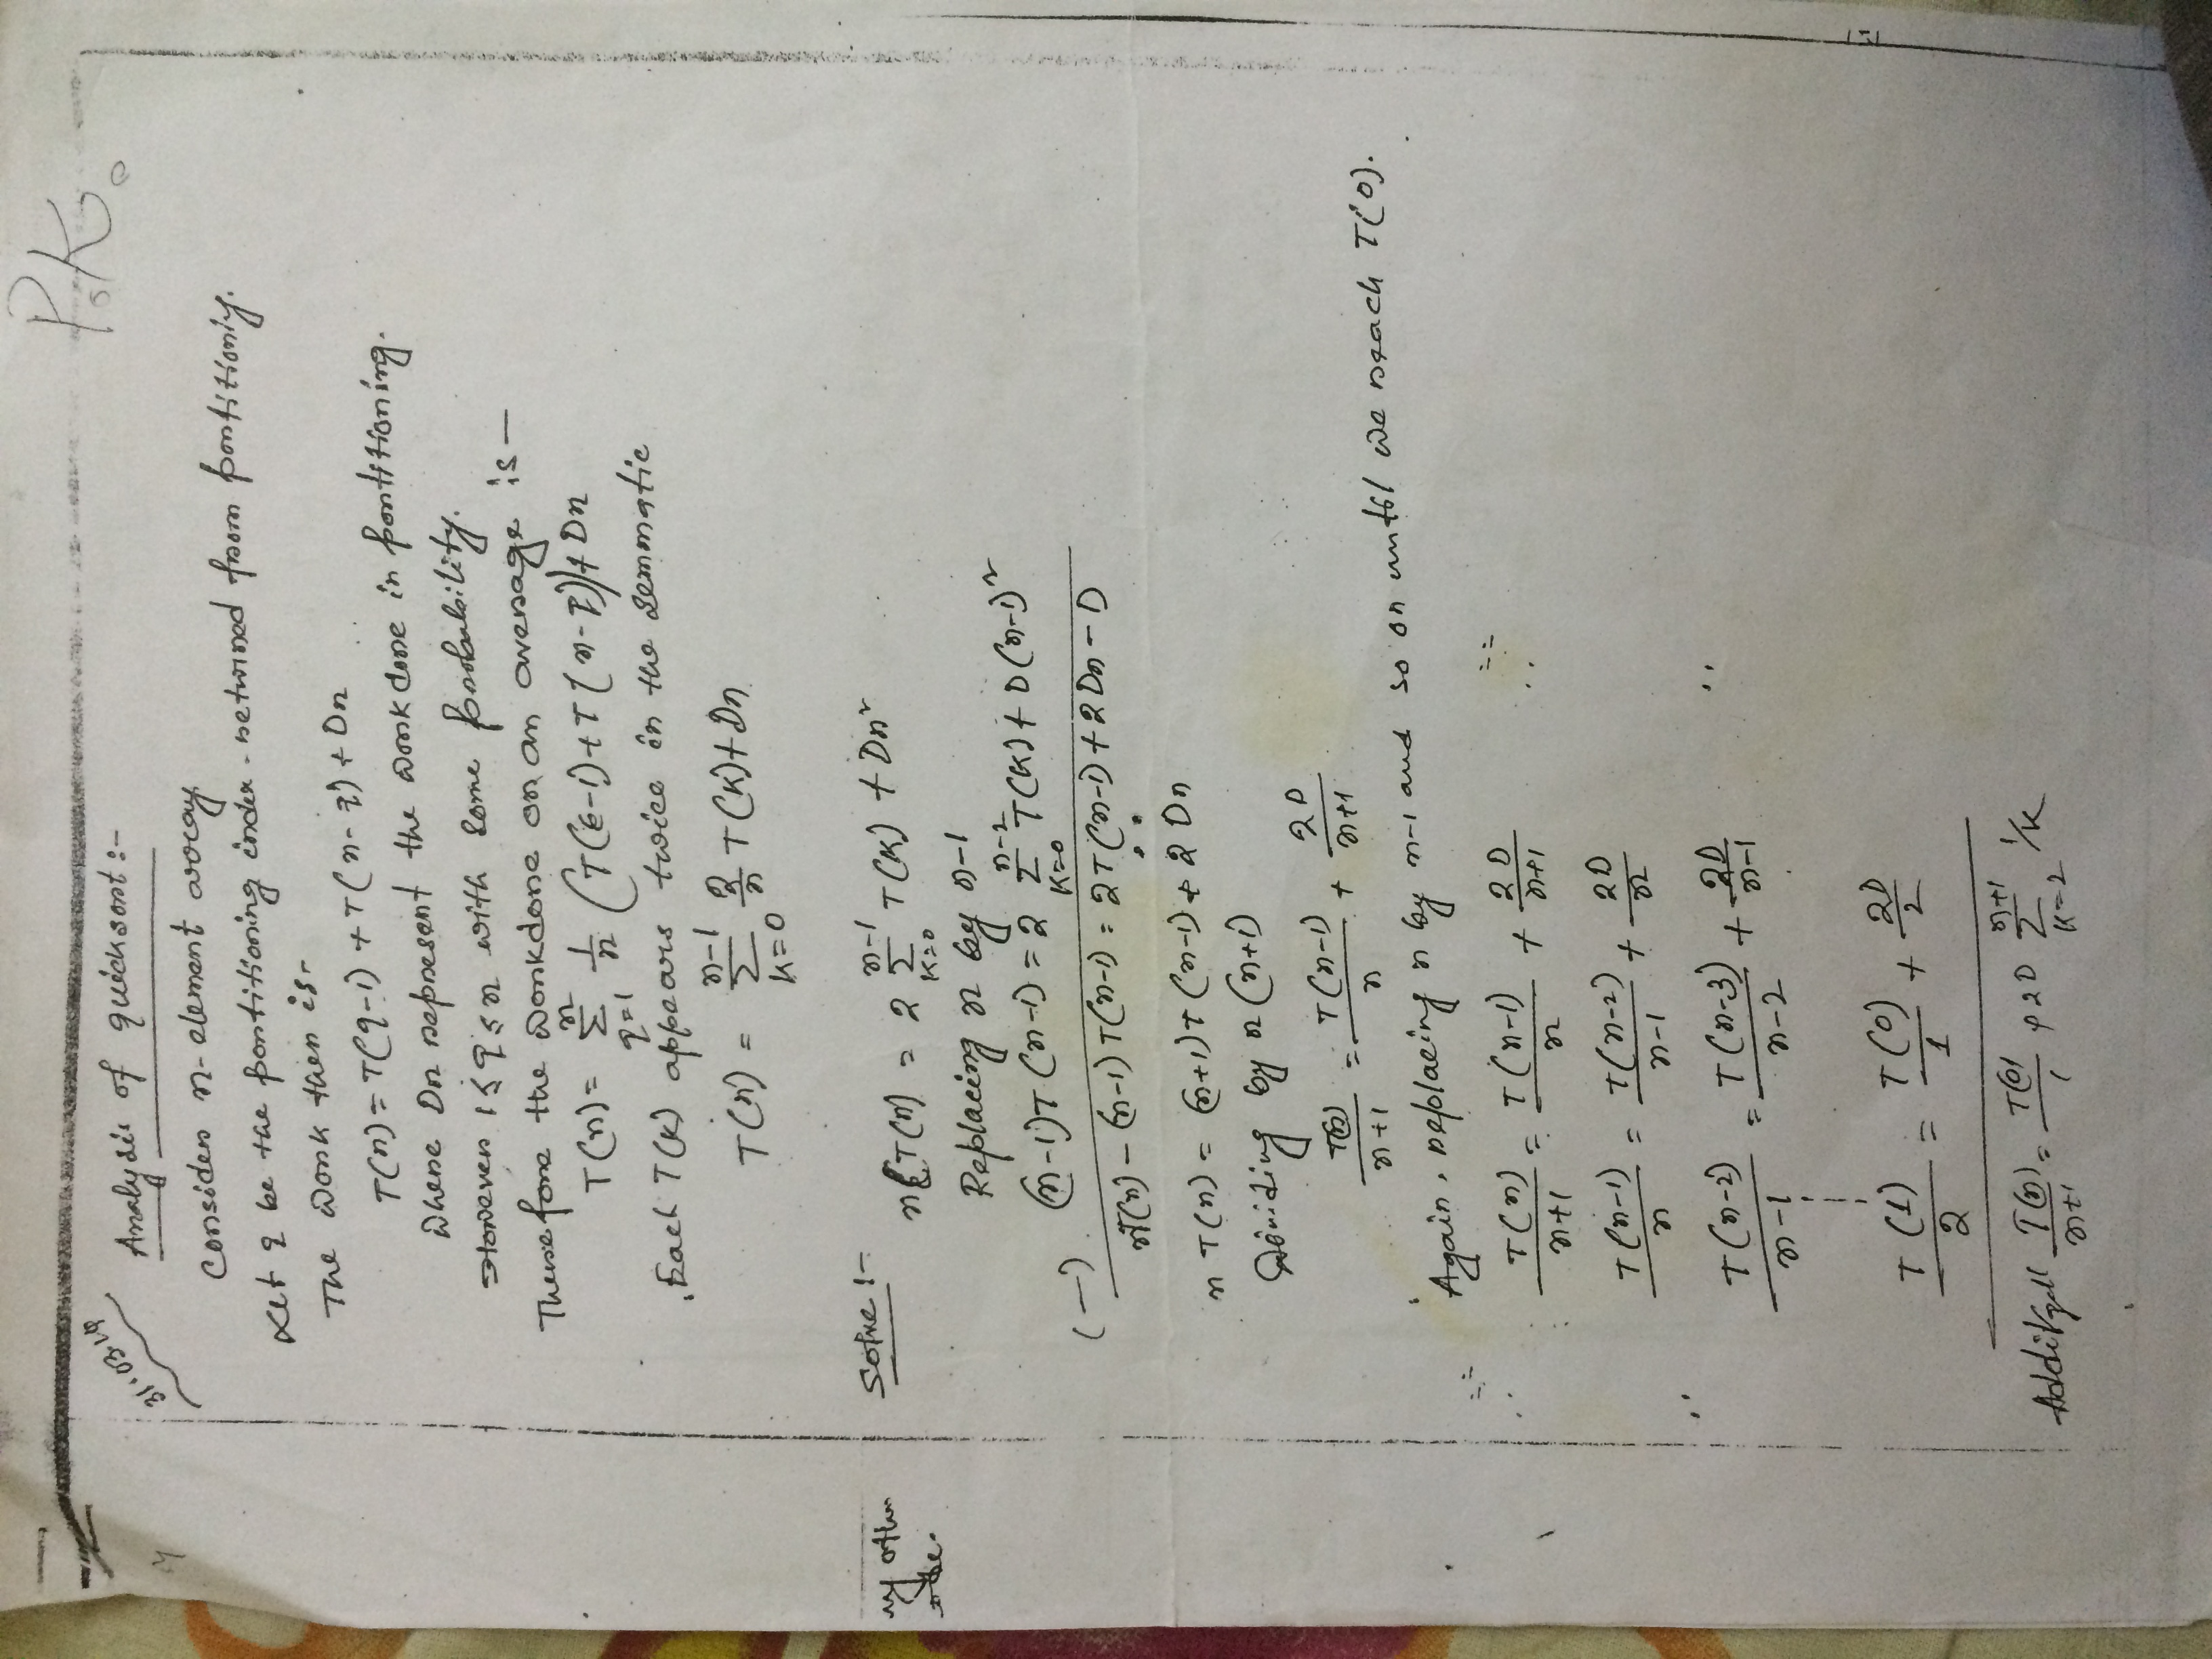 P.K.
31.03.14
Analysis of quicksort :-
Consider n-element array
Let q be the partitioning index returned from partitioning.
The work then is-
T(n) = T(q-1) + T(n-q) + Dn
where Dn represent the work done in partitioning.
However 1 ≤ q ≤ n with some probability.
Therefore the workdone on an average is —
T(n) = n Σ q=1 1/n (T(q-1) + T(n-q)) + Dn
Each T(K) appears twice in the semmatic
T(n) = n-1 Σ K=0 2/n T(K) + Dn
Solve :-
nT(n) = 2 n-1 Σ K=0 T(K) + Dn²
my other
Replacing n by n-1
(n-1)T(n-1) = 2 n-2 Σ K=0 T(K) + D(n-1)²
(-)
nT(n) - (n-1)T(n-1) = 2T(n-1) + 2Dn - D
n T(n) = (n+1)T(n-1) + 2Dn
Dividing by n(n+1)
T(n)/n+1 = T(n-1)/n + 2D/n+1
Again, replacing n by n-1 and so on until we reach T(0).
T(n)/n+1 = T(n-1)/n + 2D/n+1
T(n-1)/n = T(n-2)/n-1 + 2D/n
T(n-2)/n-1 = T(n-3)/n-2 + 2D/n-1
T(1)/2 = T(0)/1 + 2D/2
T(n)/n+1 = T(0)/1 + 2D n+1 Σ K=2 1/K